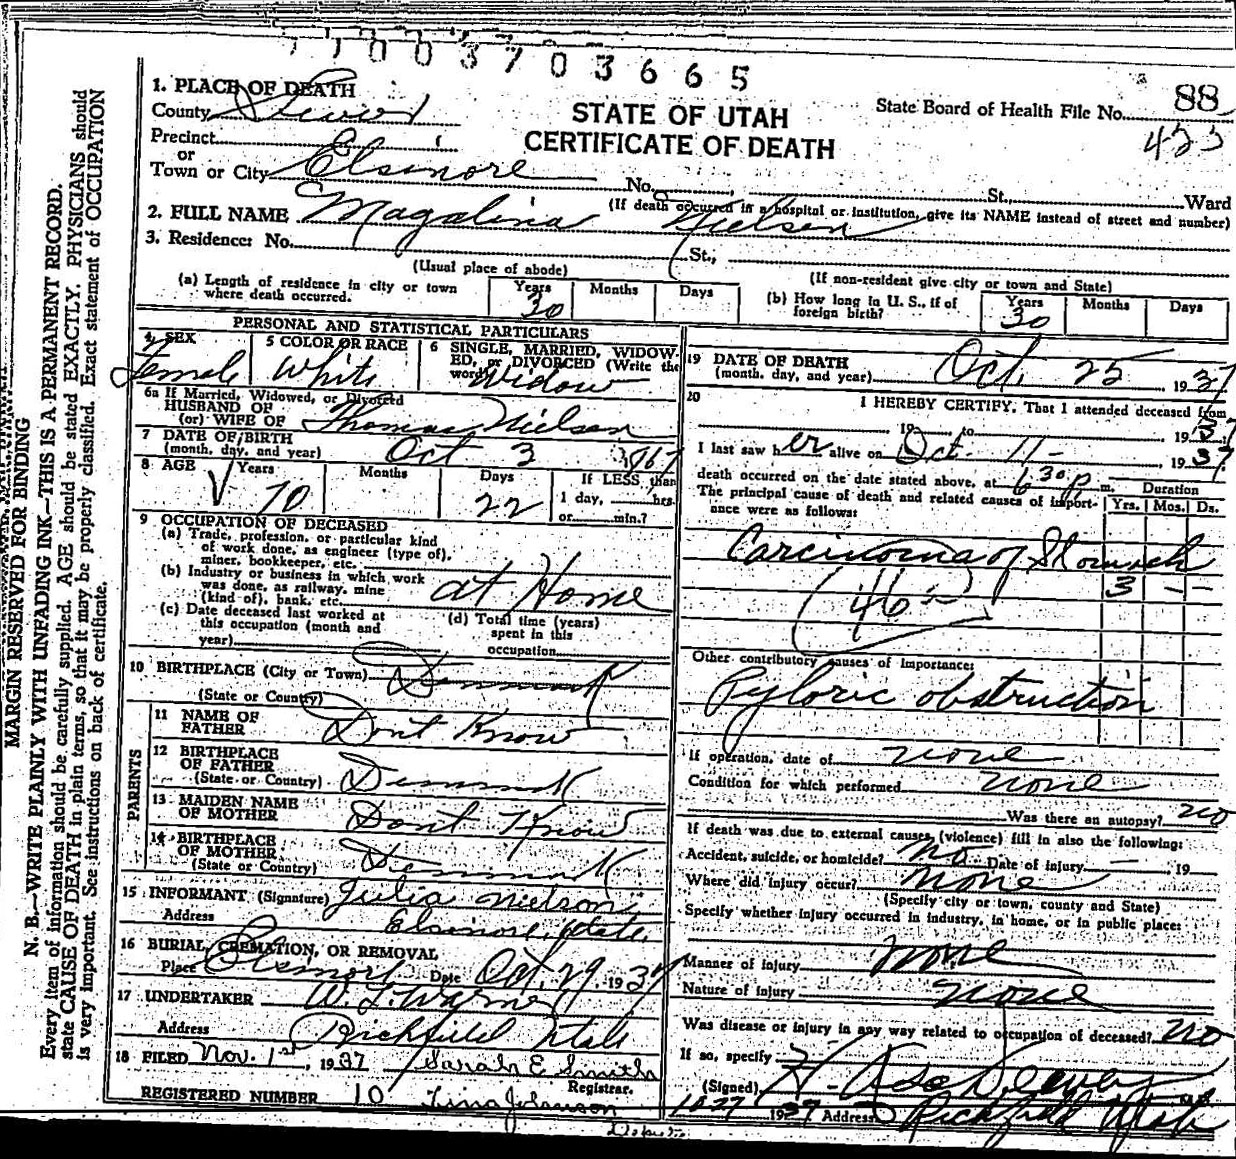 7700370 3665
1. PLACE OF DEATH
County Sevier
STATE OF UTAH
CERTIFICATE OF DEATH
State Board of Health File No. 88
423
Precinct
or
Town or City Elsinore No. St., Ward
(If death occurred in a hospital or institution, give its NAME instead of street and number)
2. FULL NAME Magalina Nielsen
3. Residence: No. St.,
(Usual place of abode) (If non-resident give city or town and State)
(a) Length of residence in city or town where death occurred. Years 30 Months Days
(b) How long in U. S., if of foreign birth? Years 30 Months Days
PERSONAL AND STATISTICAL PARTICULARS
4 SEX Female
5 COLOR OR RACE White
6 SINGLE, MARRIED, WIDOWED, or DIVORCED (Write the word) Widow
6a If Married, Widowed, or Divorced
HUSBAND OF
(or) WIFE OF Thomas Nielsen
7 DATE OF BIRTH
(month, day, and year) Oct 3 1867
8 AGE Years 70 Months Days 22 If LESS than
1 day, hrs.
or min.?
9 OCCUPATION OF DECEASED
(a) Trade, profession, or particular kind
of work done, as engineer (type of),
miner, bookkeeper, etc.
(b) Industry or business in which work
was done, as railway, mine
(kind of), bank, etc. at Home
(c) Date deceased last worked at
this occupation (month and
year)
(d) Total time (years)
spent in this
occupation
10 BIRTHPLACE (City or Town) Denmark
(State or Country)
PARENTS
11 NAME OF
FATHER Dont Know
12 BIRTHPLACE
OF FATHER
(State or Country) Denmark
13 MAIDEN NAME
OF MOTHER Dont Know
14 BIRTHPLACE
OF MOTHER
(State or Country) Denmark
15 INFORMANT (Signature) Julia Nielson
Address Elsinore, Utah
16 BURIAL, CREMATION, OR REMOVAL
Place Elsinore Date Oct. 29, 1937
17 UNDERTAKER
Address Richfield Utah
18 FILED Nov. 1st, 1937 Sarah E Smith
Registrar.
REGISTERED NUMBER 10 Tina Johanson
Deputy
19 DATE OF DEATH
(month, day, and year) Oct. 25, 1937
20 I HEREBY CERTIFY, That I attended deceased from
19 to 1937
I last saw her alive on Oct. 11- 1937
death occurred on the date stated above, at 6 30 p m. Duration
The principal cause of death and related causes of importance were as follows: Yrs. Mos. Ds.
Carcinoma of Stomach
3 - -
(46
Other contributory causes of importance:
Pyloric obstruction
If operation, date of none
Condition for which performed none
Was there an autopsy? no
If death was due to external causes, (violence) fill in also the following:
Accident, suicide, or homicide? no Date of injury - , 19
Where did injury occur? none
(Specify city or town, county and State)
Specify whether injury occurred in industry, in home, or in public place:
Manner of injury none
Nature of injury none
Was disease or injury in any way related to occupation of deceased? no
If so, specify
(Signed)
10-27 1937 Address Richfield Utah
MARGIN RESERVED FOR BINDING
N. B.—WRITE PLAINLY WITH UNFADING INK—THIS IS A PERMANENT RECORD.
Every item of information should be carefully supplied. AGE should be stated EXACTLY. PHYSICIANS should
state CAUSE OF DEATH in plain terms, so that it may be properly classified. Exact statement of OCCUPATION
is very important. See instructions on back of certificate.